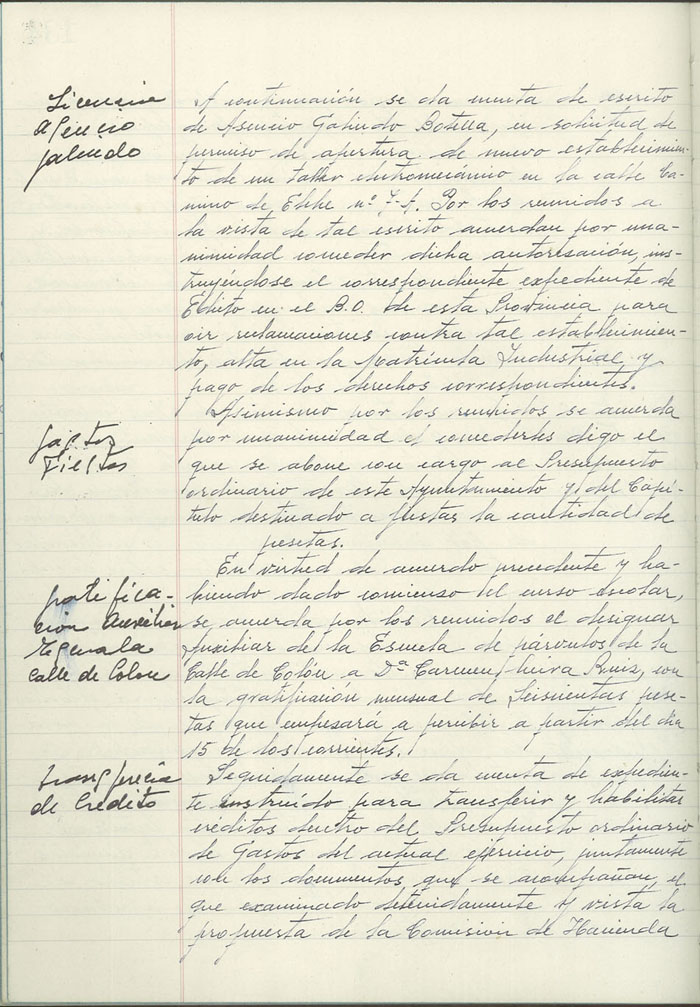 Licencia
Asencio
Galindo
A continuación se da cuenta de escrito
de Asencio Galindo Botella, en solicitud de
permiso de apertura de nuevo establecimien-
to de un taller electromecánico en la calle Ca-
mino de Elche nº 7-A. Por los reunidos a
la vista de tal escrito acuerdan por una-
nimidad conceder dicha autorización, ins-
truyéndose el correspondiente expediente de
Edicto en el B.O. de esta Provincia para
oir reclamaciones contra tal establecimien-
to, alta en la Matrícula Industrial y
pago de los derechos correspondientes.
Gastos
Fiestas
Asimismo por los reunidos se acuerda
por unanimidad el concederles digo el
que se abone con cargo al Presupuesto
ordinario de este Ayuntamiento y del Capí-
tulo destinado a fiestas la cantidad de
pesetas.
gratifica-
ción Auxiliar
Escuela
calle de Colon
En virtud de acuerdo precedente y ha-
biendo dado comienzo del curso escolar,
se acuerda por los reunidos el designar
Auxiliar de la Escuela de párvulos de la
Calle de Colón, a Dª Carmen Ruiz, con
la gratificación mensual de Seiscientas pese-
tas que empezará a percibir a partir del dia
15 de los corrientes.
transferencia
de Crédito
Seguidamente se da cuenta de expedien-
te instruído para transferir y habilitar
créditos dentro del Presupuesto ordinario
de Gastos del actual ejercicio, juntamente
con los documentos que se acompañan, el
que examinado detenidamente y vista la
propuesta de la Comisión de Hacienda